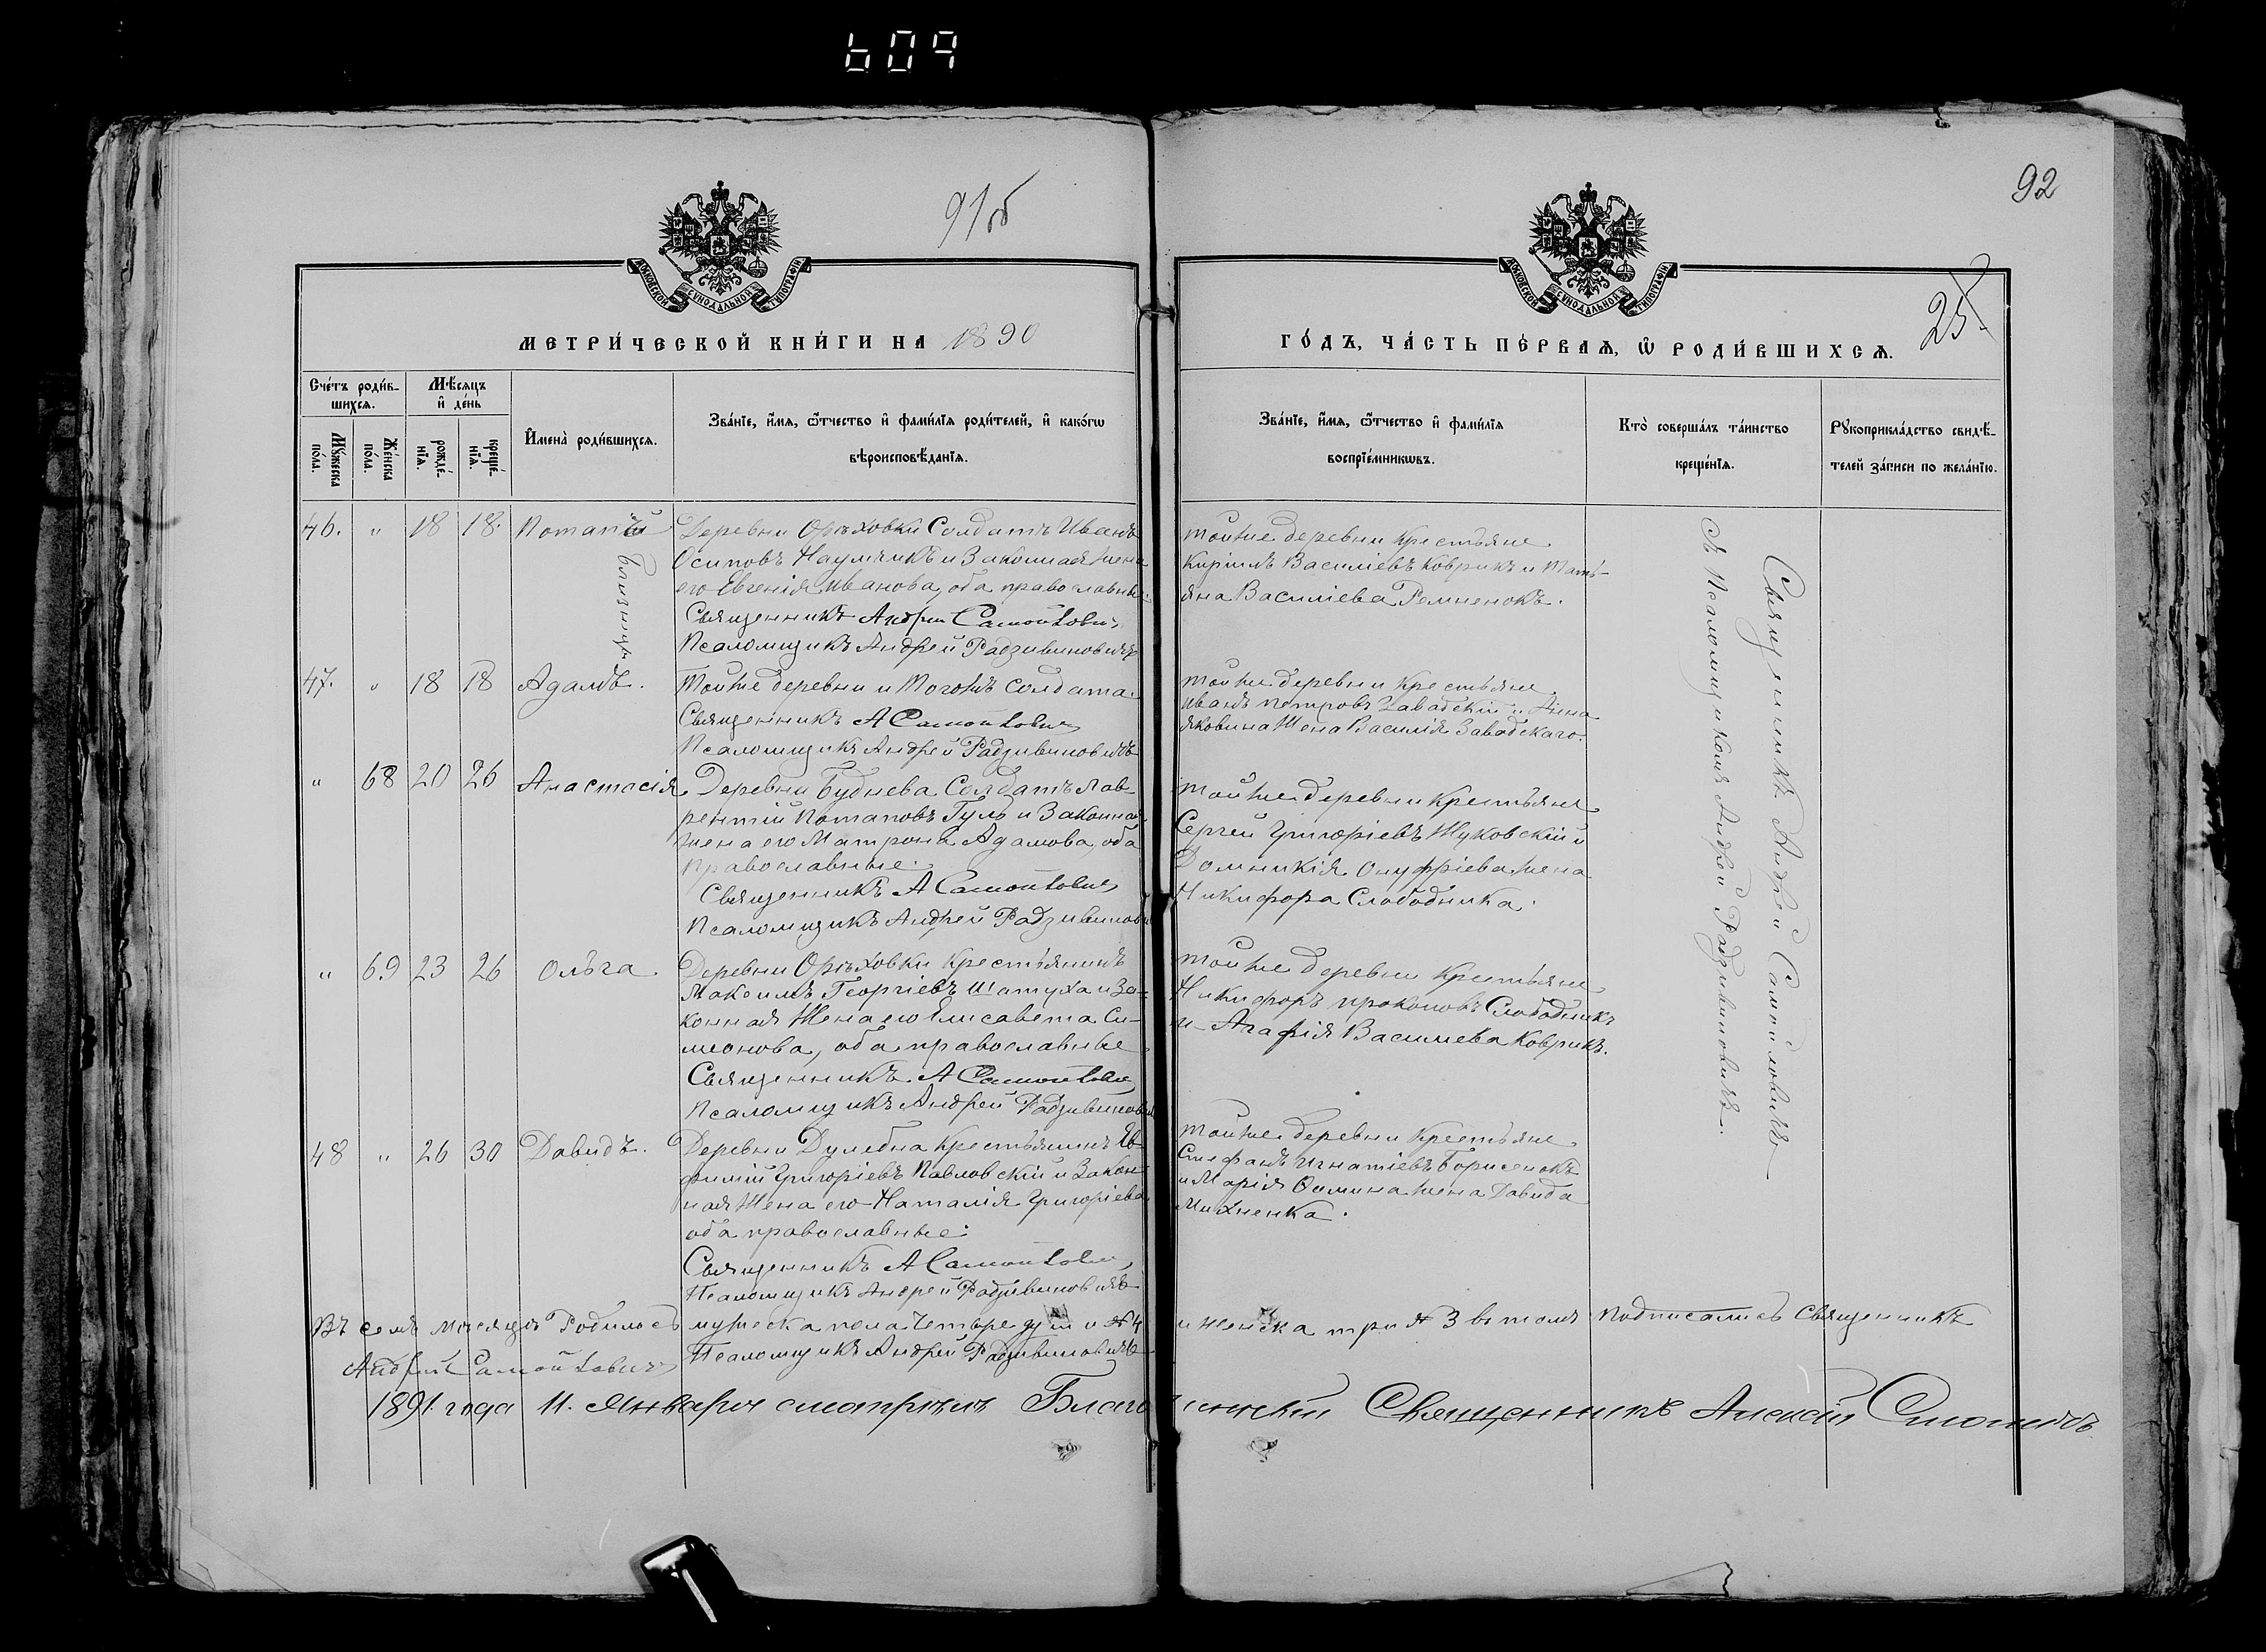 609
91об
92
25
МОСКОВСКОЙ СѴНОДАЛЬНОЙ ТИПОГРАФІИ
МОСКОВСКОЙ СѴНОДАЛЬНОЙ ТИПОГРАФІИ
МЕТРИ́ЧЕСКОЙ КНИ́ГИ НА 1890
ГО́ДЪ, ЧА́СТЬ ПЕ́РВАѦ, Ѽ РОДИ́ВШИХСѦ.
Сче́тъ роди́в-
шихсѧ.
Мꙋ́жеска по́ла.
Же́нска по́ла.
Мѣ́сѧцъ и҆ де́нь
рожде́-
нїѧ.
креще́-
нїѧ.
И҆мена̀ роди́вшихсѧ.
Зва́нїе, и҆́мѧ, ѻ҆́тчество и҆ фами́лїѧ роди́телей, и҆ како́гѡ
вѣроисповѣ́данїѧ.
Зва́нїе, и҆́мѧ, ѻ҆́тчество и҆ фами́лїѧ
воспрїе́мникѡвъ.
Кто̀ соверша́лъ та́инство
креще́нїѧ.
Рꙋкоприкла́дство свидѣ́-
телей за́писи по жела́нїю.
46. " 18 18. Потапій
близнцы
Деревни Орѣховки Солдатъ Иванъ
Осиповъ Наумчикъ и Законная жена
его Евгенія Иванова, оба православные.
Священникъ Андрей Самойловичъ
Псаломщикъ Андрей Радзивиновичъ
тойже деревни крестьяне
Кирилъ Василіевъ Коврикъ и Тать-
яна Василіева Ремненокъ.
47. " 18 18 Адамъ.
Тойже деревни и тогожъ солдата.
Священникъ А Самойловичъ
Псаломщикъ Андрей Радзивиновичъ
тойже деревни крестьяне
Иванъ Петровъ Завадскій и Анна
Яковина жена Василія Завадскаго.
" 68 20 26 Анастасія
Деревни Буднева Солдатъ Лав-
рентій Потаповъ Гуль и Законная
жена его Матрона Адамова, оба
православные.
Священникъ А Самойловичъ
Псаломщикъ Андрей Радзивинович
тойже деревни крестьяне
Сергей Григоріевъ Жуковскій и
Домникія Онуфріева жена
Никифора Слободника.
" 69 23 26 Ольга.
Деревни Орѣховки крестьянинъ
Максимъ Георгіевъ Шатуха и За-
конная жена его Елисавета Си-
меонова, оба православные
Священникъ А Самойловичъ
Псаломщикъ Андрей Радзивинович
тойже деревни крестьяне
Никифоръ Прокоповъ Слободникъ
и Агафія Василіева Коврикъ.
48 " 26 30 Давидъ.
Деревни Дулебна крестьянинъ Ев-
фимій Григоріевъ Павловскій и Закон-
ная жена его Наталія Григоріева
оба православные.
Священникъ А Самойловичъ
Псаломщикъ Андрей Радзивиновичъ
тойже деревни крестьяне
Стефанъ Игнатіевъ Борисенокъ
и Марія Ѳомина жена Давида
Михненка.
Священникъ Андрей Самойловичъ
съ Псаломщикомъ Андрей Радзивиновичъ.
Въ семъ мѣсяцѣ Родилось мужеска пола четыре души № 4 и женска три № 3 въ томъ подписались Священникъ
Андрей Самойловичъ Псаломщикъ Андрей Радзивиновичъ
1891. года 11. Января смотрѣлъ Благочинный Священникъ Алексій